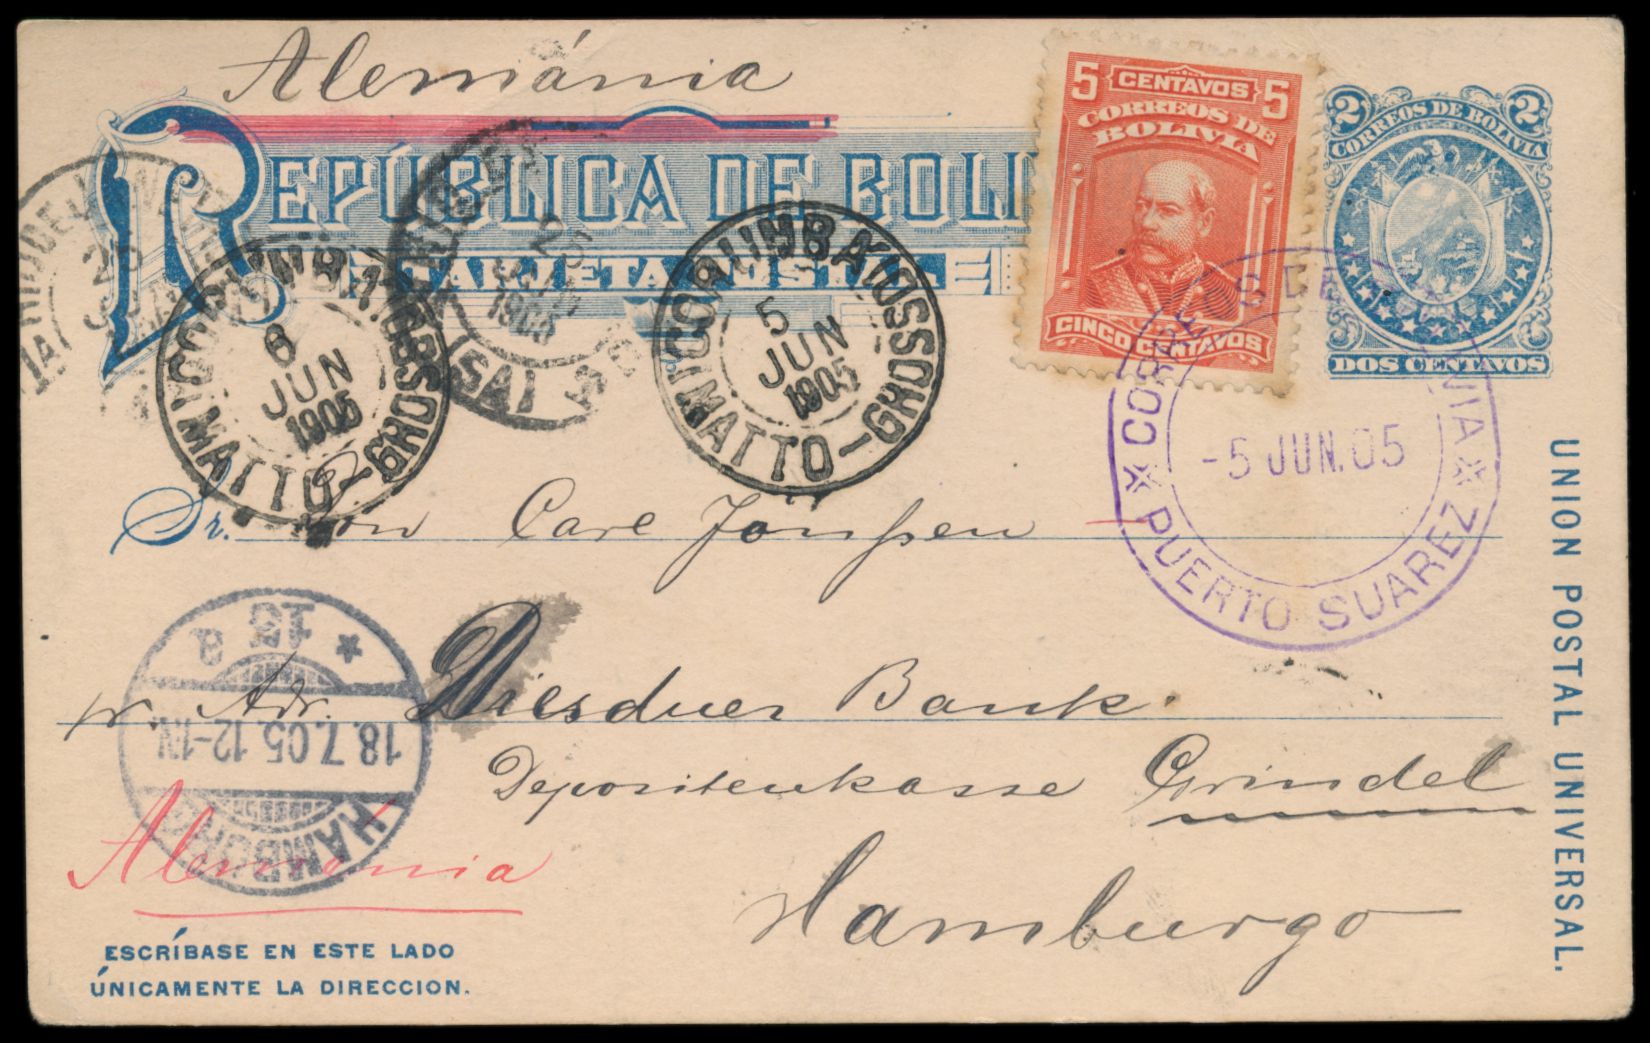 Alemánia
REPÚBLICA DE BOLI
TARJETA POSTAL
5 CENTAVOS 5
CORREOS DE
BOLIVIA
CINCO CENTAVOS
2 2
CORREOS DE BOLIVIA
DOS CENTAVOS
25
1905
CORUMBA
6
JUN
1905
(MATTO-GROSSO)
CORUMBA
5
JUN
1905
(MATTO-GROSSO)
CORREOS DE BOLIVIA
-5 JUN. 05
PUERTO SUAREZ
UNION POSTAL UNIVERSAL.
Sr. Don Carl
pr. Adr. Dresdner Bank.
Depositenkasse Grindel
Hamburgo
HAMBURG
18.7.05.12-1N
* 13 a
Alemánia
ESCRÍBASE EN ESTE LADO
ÚNICAMENTE LA DIRECCION.